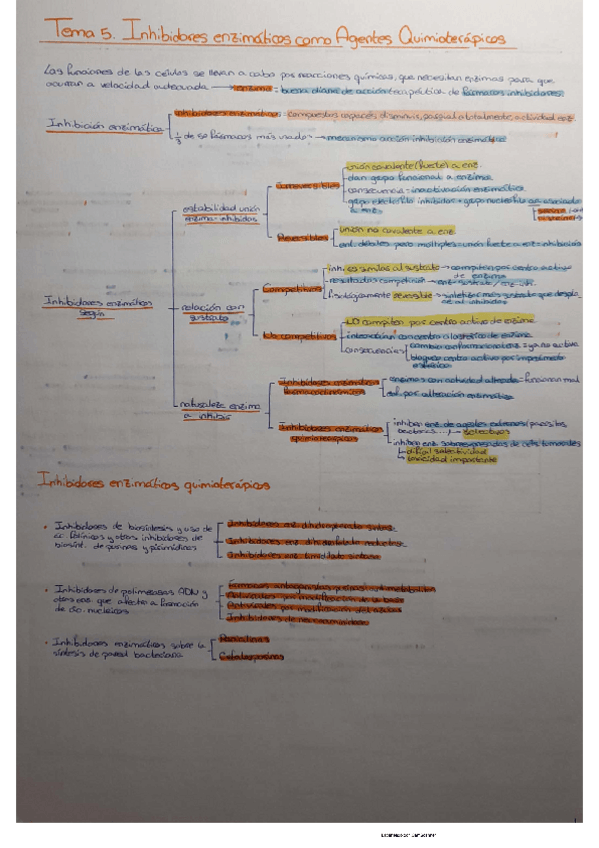 Tema 5. Inhibidores enzimáticos como Agentes Quimioterápicos
Las funciones de las células se llevan a cabo por reacciones químicas, que necesitan enzimas para que
ocurran a velocidad adecuada → enzima = buena diana de acción terapéutica de fármacos inhibidores.
Inhibición enzimática
inhibidores enzimáticos = compuestos capaces disminuir, parcial o totalmente actividad enz.
1/3 de 50 fármacos más usados → mecanismo acción inhibición enzimática
Inhibidores enzimáticos según
estabilidad unión enzima-inhibidor
Irreversibles
unión covalente (fuerte) a enz.
dan grupo funcional a enzima
consecuencia = inactivación enzimática
grupo electrófilo inhibidor + grupo nucleófilo
a enz.
Reversibles
unión no covalente a enz.
enl. débiles pero múltiples = unión fuerte a enz = inhibición
relación con sustrato
Competitivos
inh. es similar al sustrato → compiten por centro activo
de enzima
resultado competición → enz-sustrato / enz-inh.
fisiológicamente reversible → sintetizar más sustrato que
al inhibidor
No competitivos
NO compiten por centro activo de enzima
interaccionan con centro alostérico de enzima
consecuencia
cambia conformacional enz. y ya no activa
bloquear centro activo por impedimento
estérico
naturaleza enzima a inhibir
Inhibidores enzimáticos farmacodinámicos
enzimas con actividad alterada = funcionan mal
pat. por alteración enzimática
Inhibidores enzimáticos quimioterápicos
inhiben enz. de agentes externos (parásitos,
bacterias...) → selectivos
inhiben enz. sobreexpresadas de céls. tumorales
difícil selectividad
toxicidad importante
Inhibidores enzimáticos quimioterápicos
• Inhibidores de biosíntesis y uso de
ác. fólicos y otros inhibidores de
biosínt. de purinas y pirimidinas
Inhibidores enz. dihidropteroato sintasa
Inhibidores enz. dihidrofolato reductasa
Inhibidores enz. timidilato sintasa
• Inhibidores de polimerasas ADN y
otras enz. que afectan a formación
de ác. nucleicos
Antivirales por modificación de la base
Antivirales por modificación del azúcar
• Inhibidores enzimáticos sobre la
síntesis de pared bacteriana
Penicilinas
Cefalosporinas